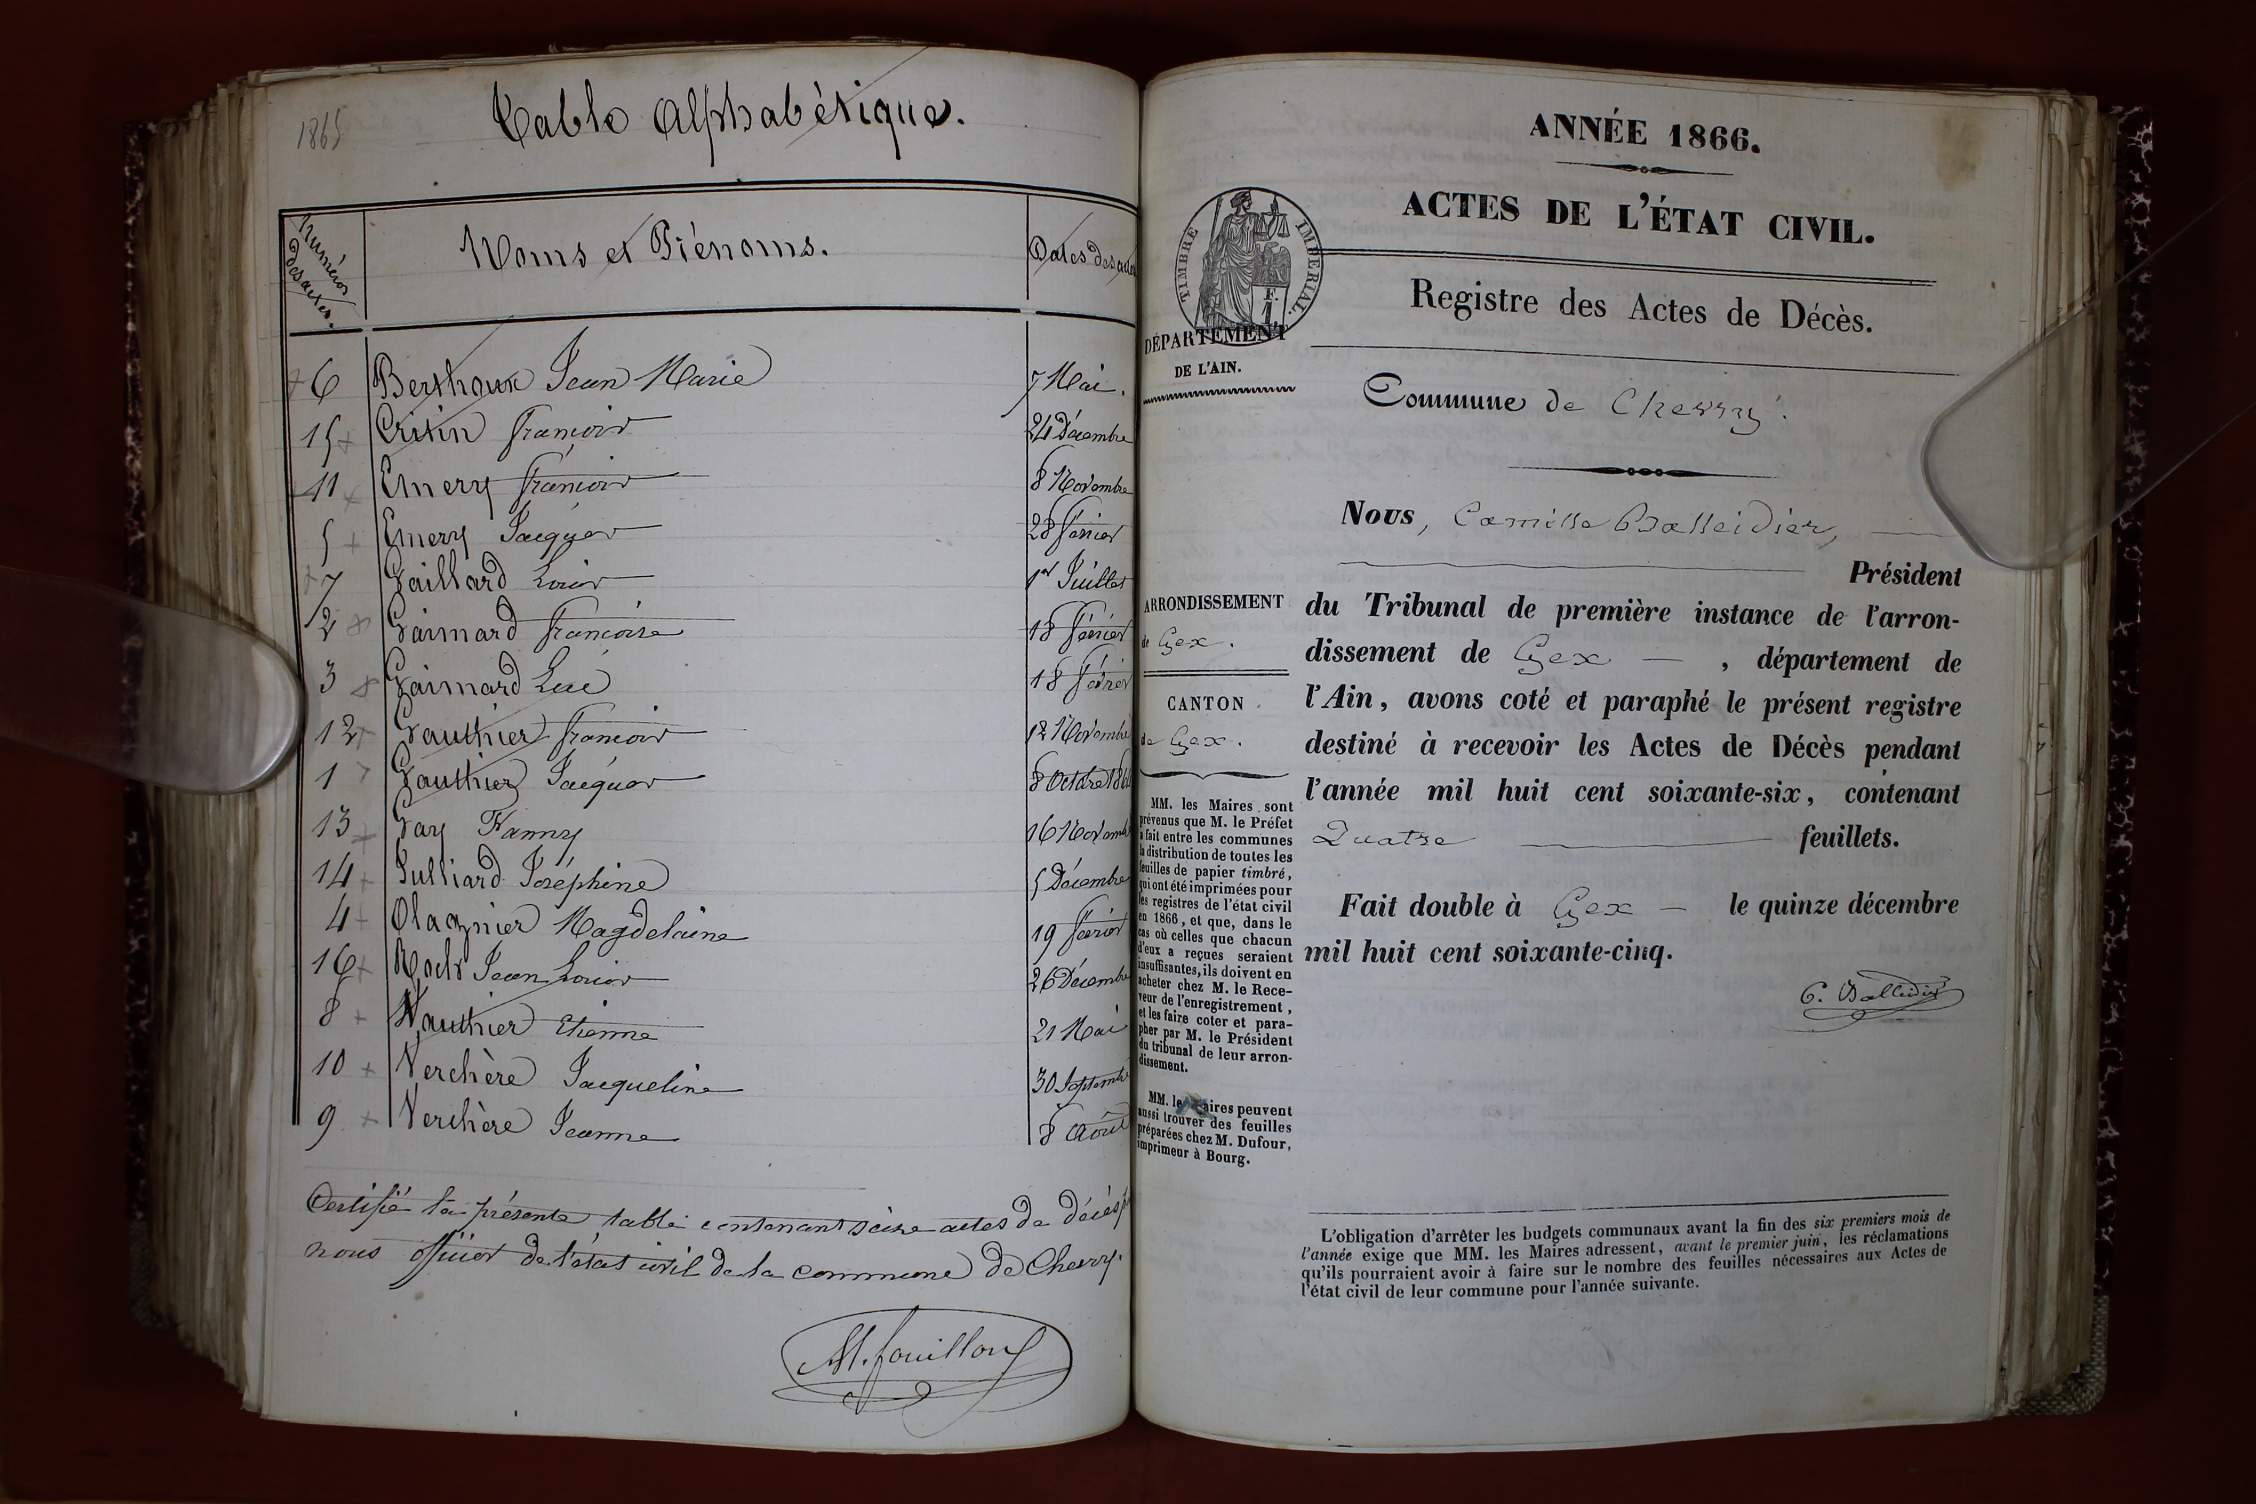 1865
Table Alphabétique.
Numéros des actes.
Noms et Prénoms.
Dates des actes
6 Berthoux Jean Marie 7 Mai.
15 Critin François 24 Décembre
11 Emery François 8 Novembre
5 Emery Jacques 28 février
7 Gaillard Louis 1er Juillet
2 Gaimard françoise 18 février
3 Gaimard Luc 18 février
12 Gauthier François 12 Novembre
1 Gauthier Jacques 8 Octobre
13 Gay Fanny 16 Novemb
14 Julliard Joséphine 5 Décembre
4 Olagnier Magdelaine 19 février
16 Roch Jean Louis 26 Décembre
8 Vauthier Etienne 21 Mai
10 Verchère Jacqueline 30 Septemb
9 Verchère Jeanne 8 Août
Certifié la présente table contenant seize actes de décès p
nous officier de l'état civil de la commune de Chevry.
M. fouilloux
ANNÉE 1866.
ACTES DE L'ÉTAT CIVIL.
TIMBRE IMPÉRIAL.
F. 1
DÉPARTEMENT
DE L'AIN.
Registre des Actes de Décès.
Commune de Chevry.
Nous, Camille Balleidier,
Président
du Tribunal de première instance de l'arron-
dissement de Gex, département de
l'Ain, avons coté et paraphé le présent registre
destiné à recevoir les Actes de Décès pendant
l'année mil huit cent soixante-six, contenant
Quatre feuillets.
Fait double à Gex le quinze décembre
mil huit cent soixante-cinq.
C. Balleidier
ARRONDISSEMENT
de Gex.
CANTON
de Gex.
MM. les Maires sont
prévenus que M. le Préfet
a fait entre les communes
la distribution de toutes les
feuilles de papier timbré,
qui ont été imprimées pour
les registres de l'état civil
en 1866, et que, dans le
cas où celles que chacun
d'eux a reçues seraient
insuffisantes, ils doivent en
acheter chez M. le Rece-
veur de l'enregistrement,
et les faire coter et para-
pher par M. le Président
du tribunal de leur arron-
dissement.
MM. les Maires peuvent
aussi trouver des feuilles
préparées chez M. Dufour,
imprimeur à Bourg.
L'obligation d'arrêter les budgets communaux avant la fin des six premiers mois de
l'année exige que MM. les Maires adressent, avant le premier juin, les réclamations
qu'ils pourraient avoir à faire sur le nombre des feuilles nécessaires aux Actes de
l'état civil de leur commune pour l'année suivante.